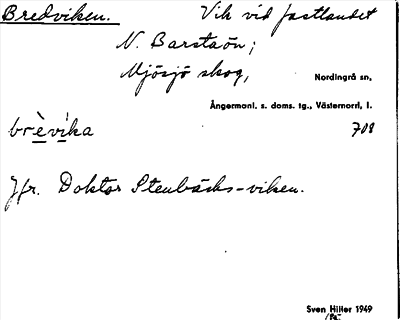 Bredviken. Vik vid fastlandet
N. Barstaön;
Mjösjö skog, Nordingrå sn,
Ångermanl. s. doms. tg., Västernorrl. l.
brèvika 708
Jfr. Doktor Stenbäcks-viken.
Sven Hiller 1949